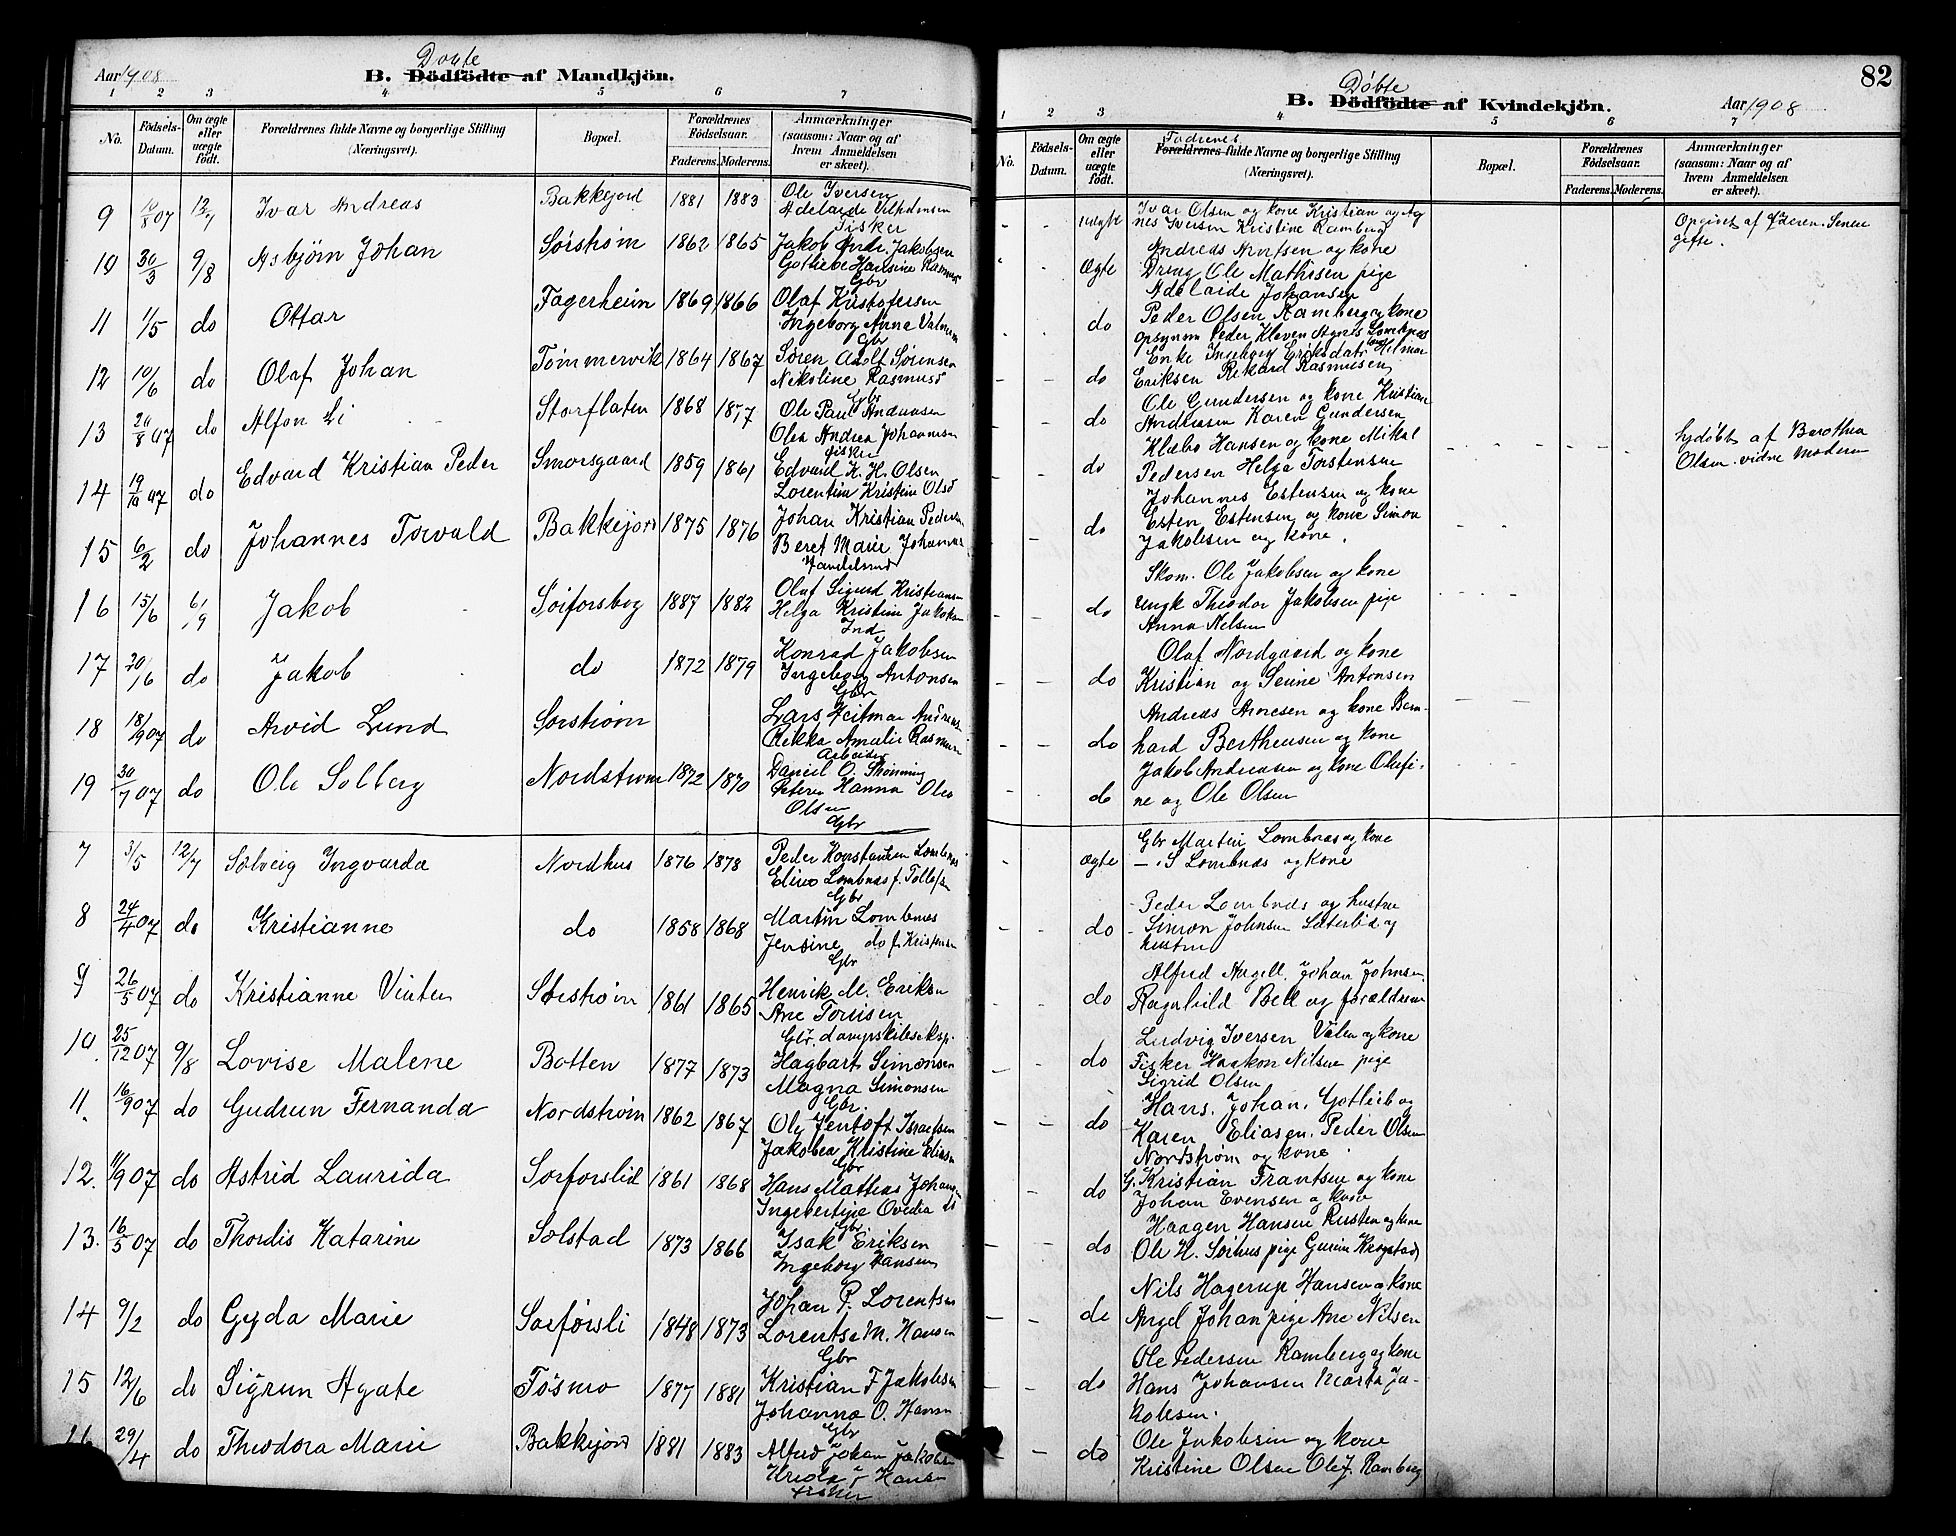 Døbte
Aar 1908 B. Dödfödte af Mandkjön.
1 2 3 4 5 6 7
No. Födsels-Datum. Om ægte eller uægte födt. Forældrenes fulde Navne og borgerlige Stilling (Næringsvei). Bopæl. Forældrenes Födselsaar. Faderens. Moderens. Anmærkninger (saasom: Naar og af hvem Anmeldelsen er skeet).
9 10/8 07 12/7 Ivar Andreas Bakkejord 1881 1883 Ole Iversen
Adelaide Vilhelmsen
Fisker
10 30/3 9/8 Asbjörn Johan Sörström 1862 1865 Jakob Andr. Jakobsen
Gotliebe Hansine Rasmus
Gbr
11 1/5 do Ottar Fagerheim 1869 1866 Olaf Kristofersen
Ingeborg Anna
Gbr
12 10/6 do Olaf Johan Tömmervik 1864 1867 Sören Adolf Sörensen
Nikoline Rasmuss
Gbr
13 20/8 07 do Alfon Li Storflaten 1868 1877 Ole Paul Andreasen
Olea Andrea Johannesen
fisker
14 19/10 07 do Edvard Kristian Peder Smorsgaard 1859 1861 Edvard K. H. Olsen
Lorentine Kristine Olsd
15 6/2 do Johannes Torvald Bakkejord 1875 1876 Johan Kristian Pedersen
Beret Marie Johannes
Handelsmd
16 15/6 6/9 Jakob Söiforsbog 1887 1882 Olaf Sigurd Kristiansen
Helga Kristine Jakobsen
Ind
17 20/6 do Jakob do 1872 1879 Konrad Jakobsen
Ingeborg Antonsen
Gbr
18 18/9 07 do Arvid Lund Sorström Lars Heitman Andreas
Rikka Amalie Rasmusen
Arbeider
19 30/7 07 do Ole Solberg Nordström 1872 1870 Daniel O. Strömning
Petrea Hanna Olea
Olsen
Gbr
7 3/5 12/7 Solveig Ingvarda Nordhus 1876 1878 Peder Konstantin Lombnæs
Elise Lombnæs f. Tollefsen
Gbr
8 24/4 07 do Kristianne do 1858 1868 Martin Lombnæs
Jensine do f Kristensen
Gbr
9 26/5 07 do Kristianne Sörström 1861 1865 Henrik M. Eriksen
Ane
Gbr. dampskibseksp.
10 25/12 07 9/8 Lovise Malene Botten 1877 1873 Hagbart Simonsen
Magna Simonsen
Gbr.
11. 16/9 07 do Gudrun Fernanda Nordström 1862 1867 Ole Jentoft Israelsen
Jakobea Kristine Eliasen
Gbr
12. 11/9 07 do Astrid Laurida Sorforslid 1861 1868 Hans Mattias Johansen
Ingebertine Ovedia do
Gbr
13. 16/5 07 do Thordis Katarine Solstad 1873 1866 Isak Eriksen
Ingeborg Hansen
14 9/2 do Gyda Marie Sorforsli 1848 1873 Johan P. Lorentsen
Lorentse M. Hansen
Gbr
15 12/6 do Sigrun Agate Fösmo 1877 1881 Kristian F Jakobsen
Johanna O. Hansen
Gbr
16 29/4 do Theodora Marie Bakkejord 1881 1883 Alfred Johan Jakobsen
Hansen
Fisker
Døbte
B. Dödfödte af Kvindekjön. Aar 1908 82
1 2 3 4 5 6 7
No. Födsels-Datum. Om ægte eller uægte födt. Fadernes Forældrenes fulde Navne og borgerlige Stilling (Næringsvei). Bopæl. Forældrenes Födselsaar. Faderens. Moderens. Anmærkninger (saasom: Naar og af hvem Anmeldelsen er skeet).
uægte Ivar Olsen og kone Kristian og Ag Opgivet af Faderen. Senere
nes Iversen Kristine Ramberg gifte.
Andreas Arntsen og kone
Ægte Dreng Ole Mathisen pige
Adelaide Johansen
do Peder Olsen Ramberg og kone
opsynm Peder Kleven Agnes Lombnæs
Enke Ingeborg Eriksdatr Hilmar
do Eriksen Rikard Rasmusen
Ole Gundersen og kone Kristian
do Andreasen Karen Gundersen
Klæbo Hansen og kone Mikal hjdöbt af Berothea
do Pedersen Helga Torstensen Olsen. vidne moderen
Johannes Estensen og kone
Esten Estensen og kone Simon
do Jakobsen og kone.
Skom. Ole Jakobsen og kone
do ungk Theodor Jakobsen pige
Anna Nelsen
Olaf Nordgaard og kone
do Kristian og Seine Antonsen
Andreas Arnesen og kone Bern-
do hard Berthensen og kone
Jakob Andreasen og kone Olefi-
do ne og Ole Olsen
Gbr Martin Lombnæs og kone
Ægte — . S Lombnæs og kone
Peder Lombnæs og hustru
do Simon Johnsen Sæterlid og
hustru
Alfred Angell. Johan Johnsen
do Ragnhild Bell og forældrene
Ludvig Iversen Valen og kone
do Fisker Haakon Nilsen pige
Sigrid Olsen
Hans. Johan. Gotlieb og
do Karen Eliasen. Peder Olsen
Nordström og kone
do G. Kristian Frantsen og kone
Johan Evensen og kone
Haagen Hansen Rusten og kone
do Ole H. Soihus pige Gurine Krogstad
Nils Hagerup Hansen og kone
do Angel Johan pige Ane Nilsen
Ole Pedersen Ramberg og kone
do Hans Johansen Marta Ja-
kobsen.
Ole Jakobsen og kone
do Kristine Olsen Ole J. Ramberg